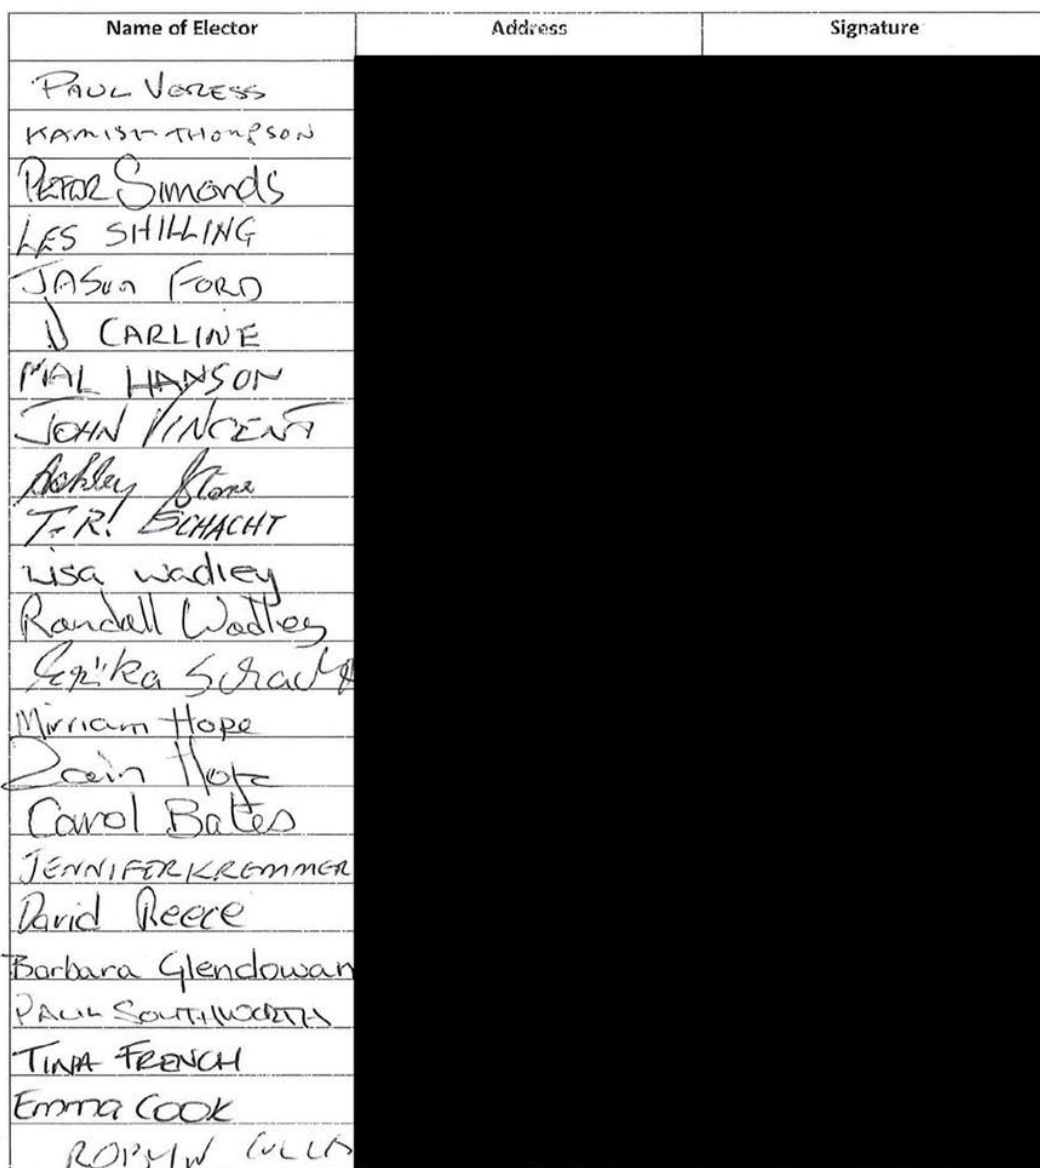 Name of Elector Address Signature
PAUL VERESS
KAMISH THOMPSON
PETER Simonds
LES SHILLING
JASON FORD
CARLINE
MAL HANSON
JOHN VINCENT
Ashley Stone
T.R. SCHACHT
Lisa Wadley
Randall Wadley
Erika Schacht
Mirriam Hope
Zain Hope
Carol Bates
JENNIFER KREMMER
David Reece
Barbara Glendowan
PAUL SOUTHWORTH
TINA FRENCH
Emma Cook
ROBYN